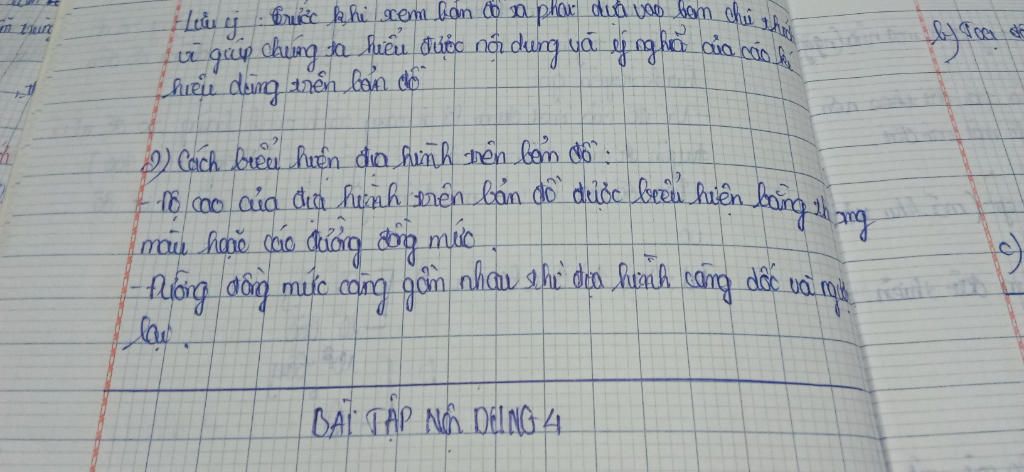 - Lưu ý: trước khi xem bản đồ ta phải dựa vào bảm chú thích
vì giúp chúng ta hiểu được nội dung và ý nghĩa của các kí
hiệu dùng trên bản đồ
2) Cách biểu hiện địa hình trên bản đồ:
- Độ cao của địa hình trên bản đồ được biểu hiện bằng thang
màu hoặc các đường đồng mức.
- Đường đồng mức càng gần nhau thì địa hình càng dốc và ngược
lại.
BÀI TẬP NỘI DUNG 4
b) Toạ độ
c)